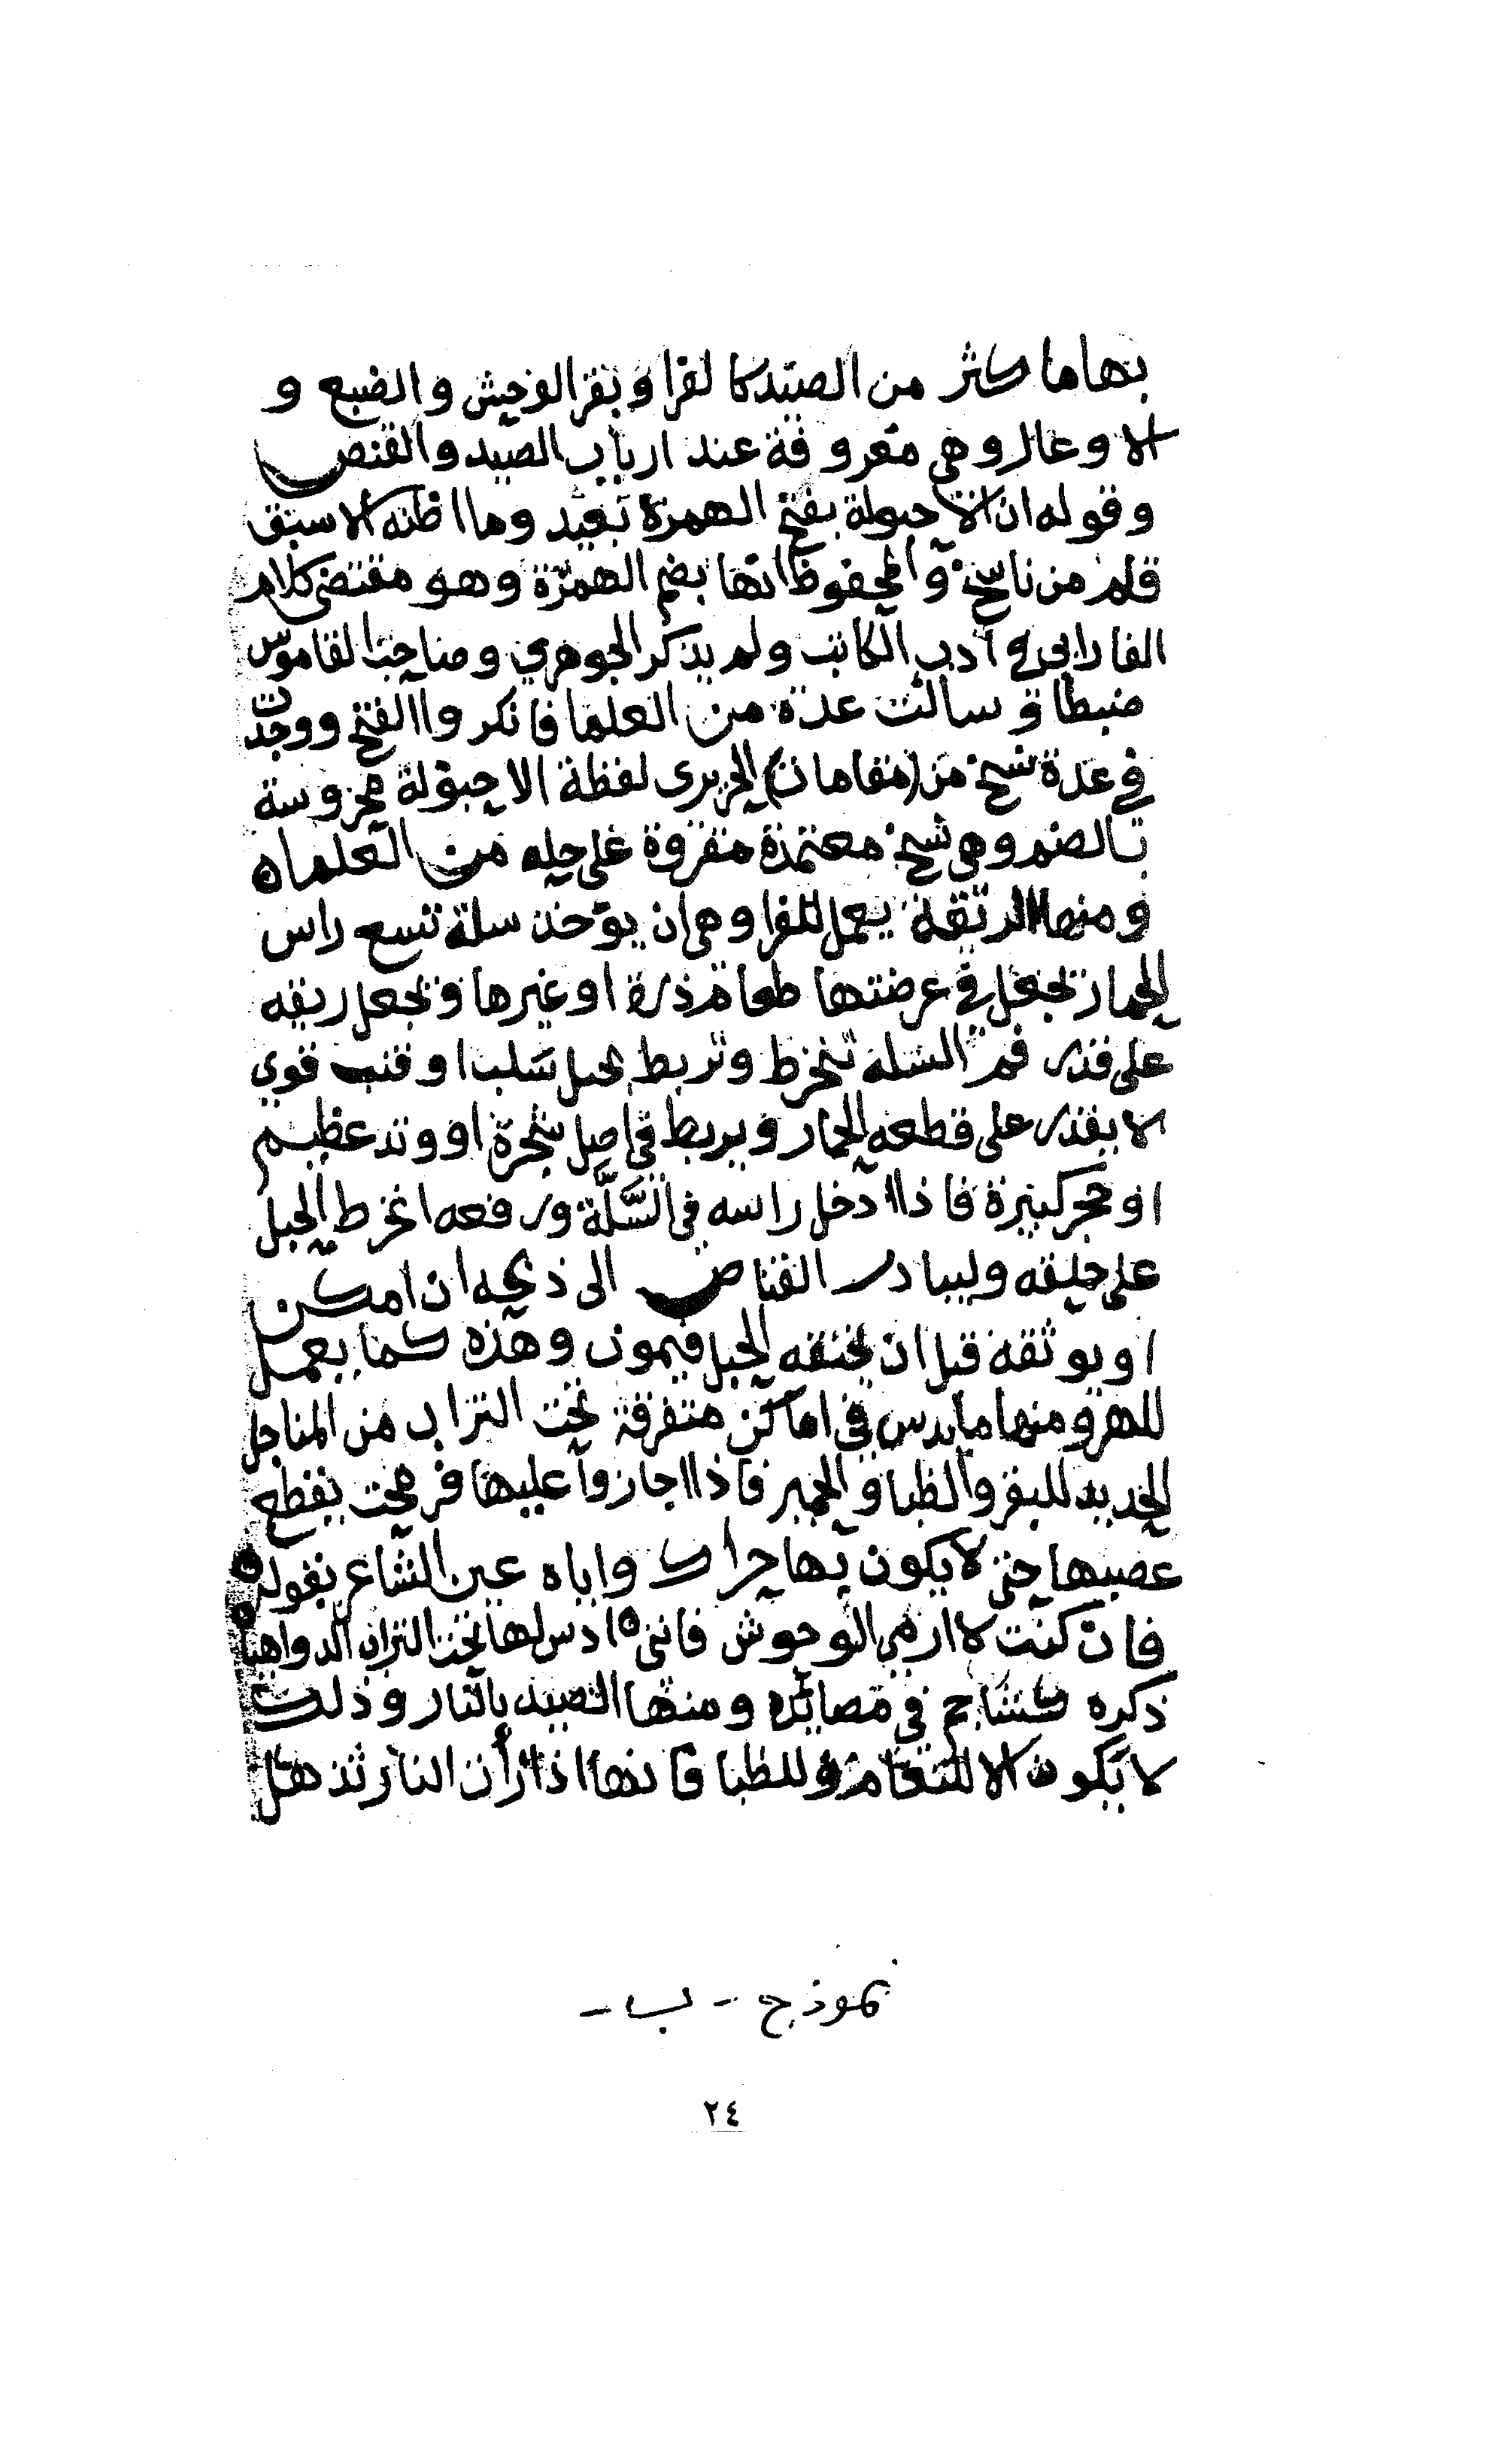 بها ما كثر من الصيد كالفرا وبقر الوحش والضبع و
الاوعال وهي معروفة عند ارباب الصيد والقنص
وقوله ان الاحبولة بفتح الهمزة بعيد وما اظنه الا سبق
قلم من ناسخ والمحفوظ انها بضم الهمزة وهو مقتضى كلام
الفارابي في ادب الكاتب ولم يذكر الجوهري وصاحب القاموس
ضبطا وسالت عدة من العلما فانكروا الفتح ووجدت
في عدة نسخ من (مقامات) الحريري لفظة الاحبولة محروسة
بالضم وهي نسخ معتمدة مقروة على جله من العلماء
ومنها الربقة يعمل للفرا وهي ان يوخذ سلة تسع راس
الحمار تجعل في عرضتها طعام ذرة او غيرها وتجعل ربقه
على قدر فم السله تنخرط وتربط بحبل سلب او قنب قوي
لا يقدر على قطعه الحمار ويربط في اصل شجرة او وتد عظيم
او حجر كبيرة فاذا ادخل راسه في السَّلَّة ورفعه انخرط الحبل
على حلقه وليبادر القناص الى ذبحه ان امكن
او يوثقه قبل ان يخنقه الحبل فيموت وهذه كما يعمل
للهر ومنها ما يدس في اماكن متفرقة تحت التراب من المناجل
الحديد للبقر والظبا والحمير فاذا اجازوا عليها فرمحت بقطع
عصبها حتى لا يكون بها حراك واياه عين الشاعر بقوله
فان كنت لا ارمي الوحوش فانني ادس لها تحت التراب الدواهيا
ذكره كشاجم في مصائده ومنها الصيد بالنار وذلك
لا يكون الا للنعام وللظبا فانها اذا رأن النار تذهل
نموذج - ب -
٢٤